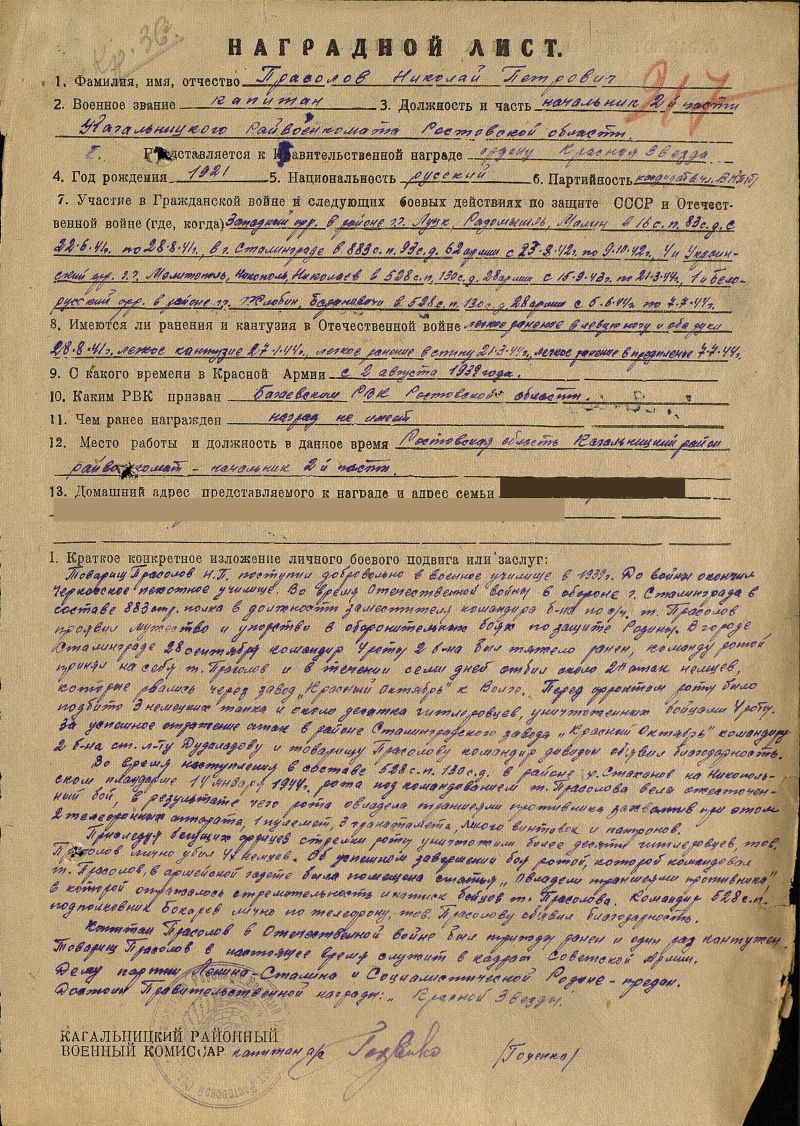 Кр. 36.
НАГРАДНОЙ ЛИСТ.
217
1. Фамилия, имя, отчество Прасолов Николай Петрович
2. Военное звание капитан 3. Должность и часть начальник 2й части
Кагальницкого Райвоенкомата Ростовской области.
Представляется к Правительственной награде ордену Красная Звезда
4. Год рождения 1921 5. Национальность русский 6. Партийность
7. Участие в Гражданской войне и следующих боевых действиях по защите СССР и Отечест-
венной войне (где, когда) Западный фр. в районе г.г. Луцк, Радомышль, Малин в 16 с.п. 83 с.д. с
22-6-41г. по 28-8-41г., в г. Сталинграде в 883 с.п. 93 с.д. 62 армии с 23-8-42г. по 9-10-42г., 4й Украин-
ский фр. г.г. Мелитополь, Никополь, Николаев в 528 с.п. 130 с.д. 28 армии с 15-9-43г. по 21-3-44г., 1й Бело-
русский фр. в районе г.г. Жлобин, Барановичи в 528 с.п. 130 с.д. 28 армии с 5-6-44г. по 7-7-44г.
8. Имеются ли ранения и кантузия в Отечественной войне легкое ранение в левую ногу и оба руки
28-8-41г. легкое кантузие 27-1-44г., легкое ранение в спину 21-3-44г., легкое ранение в предплечье 7-7-44г.
9. С какого времени в Красной Армии с 2 августа 1939 года.
10. Каким РВК призван РВК Ростовской области.
11. Чем ранее награжден наград не имеет
12. Место работы и должность в данное время Ростовская область Кагальницкий район
райвоенкомат - начальник 2й части.
13. Домашний адрес представляемого к награде и адрес семьи
I. Краткое конкретное изложение личного боевого подвига или заслуг:
Товарищ Прасолов Н.П. поступил добровольно в военное училище в 1939г. До войны окончил
пехотное училище. Во время Отечественной войны в обороне г. Сталинграда в
составе 883 стр. полка в должности заместителя командира б-на по с/ч. т. Прасолов
проявил мужество и упорство в оборонительных боях по защите Родины. В городе
Сталинграде 28 сентября командир 4 роты 2 б-на был тяжело ранен, команду ротой
принял на себя т. Прасолов и в течении семи дней отбил около 20 атак немцев,
которые рвались через завод „Красный Октябрь" к Волге. Перед фронтом роты было
подбито 3 немецких танка и около десятка гитлеровцев, уничтоженных бойцами 4 роты.
За успешное отражение атак в районе Сталинградского завода „Красный Октябрь" командиру
2 б-на ст. л-ту и товарищу Прасолову командир дивизии объявил благодарность.
Во время наступления в составе 528 с.п. 130 с.д. в районе х. Стаханов на Никополь-
ском плацдарме 14 января 1944г. рота под командованием т. Прасолова вела ожесточен-
ный бой, в результате чего рота овладела траншеями противника захватив при этом
2 телефонных аппарата, 1 пулемет, 3 гранатамета, много винтовок и патронов.
Приследуя бегущих фрицев стрелки роты уничтожили более десяти гитлеровцев, тов.
Прасолов лично убил 4х немцев. Об успешном завершении боя ротой, которой командовал
т. Прасолов, в армейской газете была помещена статья „Овладели траншеями противника"
в которой отражалось стремительность и натиск бойцов т. Прасолова. Командир 528 с.п.
подполковник Бокарев лично по телефону, тов. Прасолову объявил благодарность.
Капитан Прасолов в Отечественной войне был трижды ранен и один раз кантужен.
Товарищ Прасолов в настоящее время служит в кадрах Советской Армии.
Делу партии Ленина-Сталина и Социалистической Родине - предан.
Достоин Правительственной награды: „Красной Звезды.
КАГАЛЬНИЦКИЙ РАЙОННЫЙ
ВОЕННЫЙ КОМИССАР капитан а/с